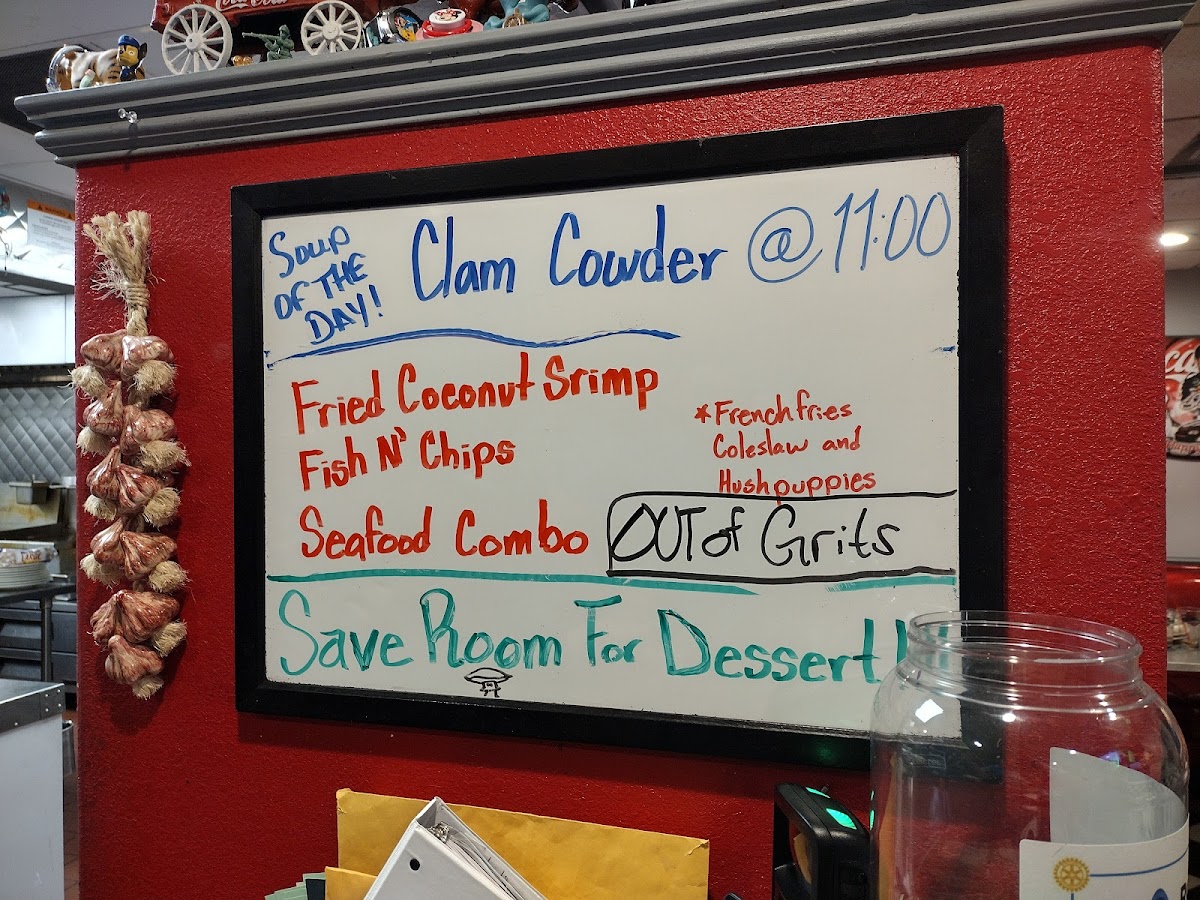 Coca-Cola
SOUP
OF THE
DAY!
Clam Cowder @ 11:00
Fried Coconut Srimp
Fish N' Chips
Seafood Combo
*French fries
Coleslaw and
Hushpuppies
OUT of Grits
Save Room For Dessert!!!